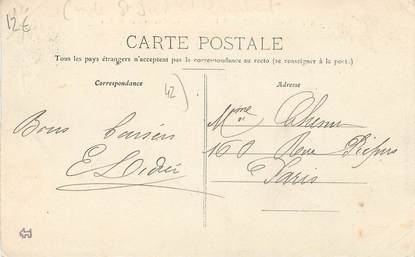 12€
CARTE POSTALE
Tous les pays étrangers n'acceptent pas la correspondance au recto (se renseigner à la poste.)
Correspondance
42
Bons baisers
E Didier
Adresse
Mme
160 Rue Picpus
Paris